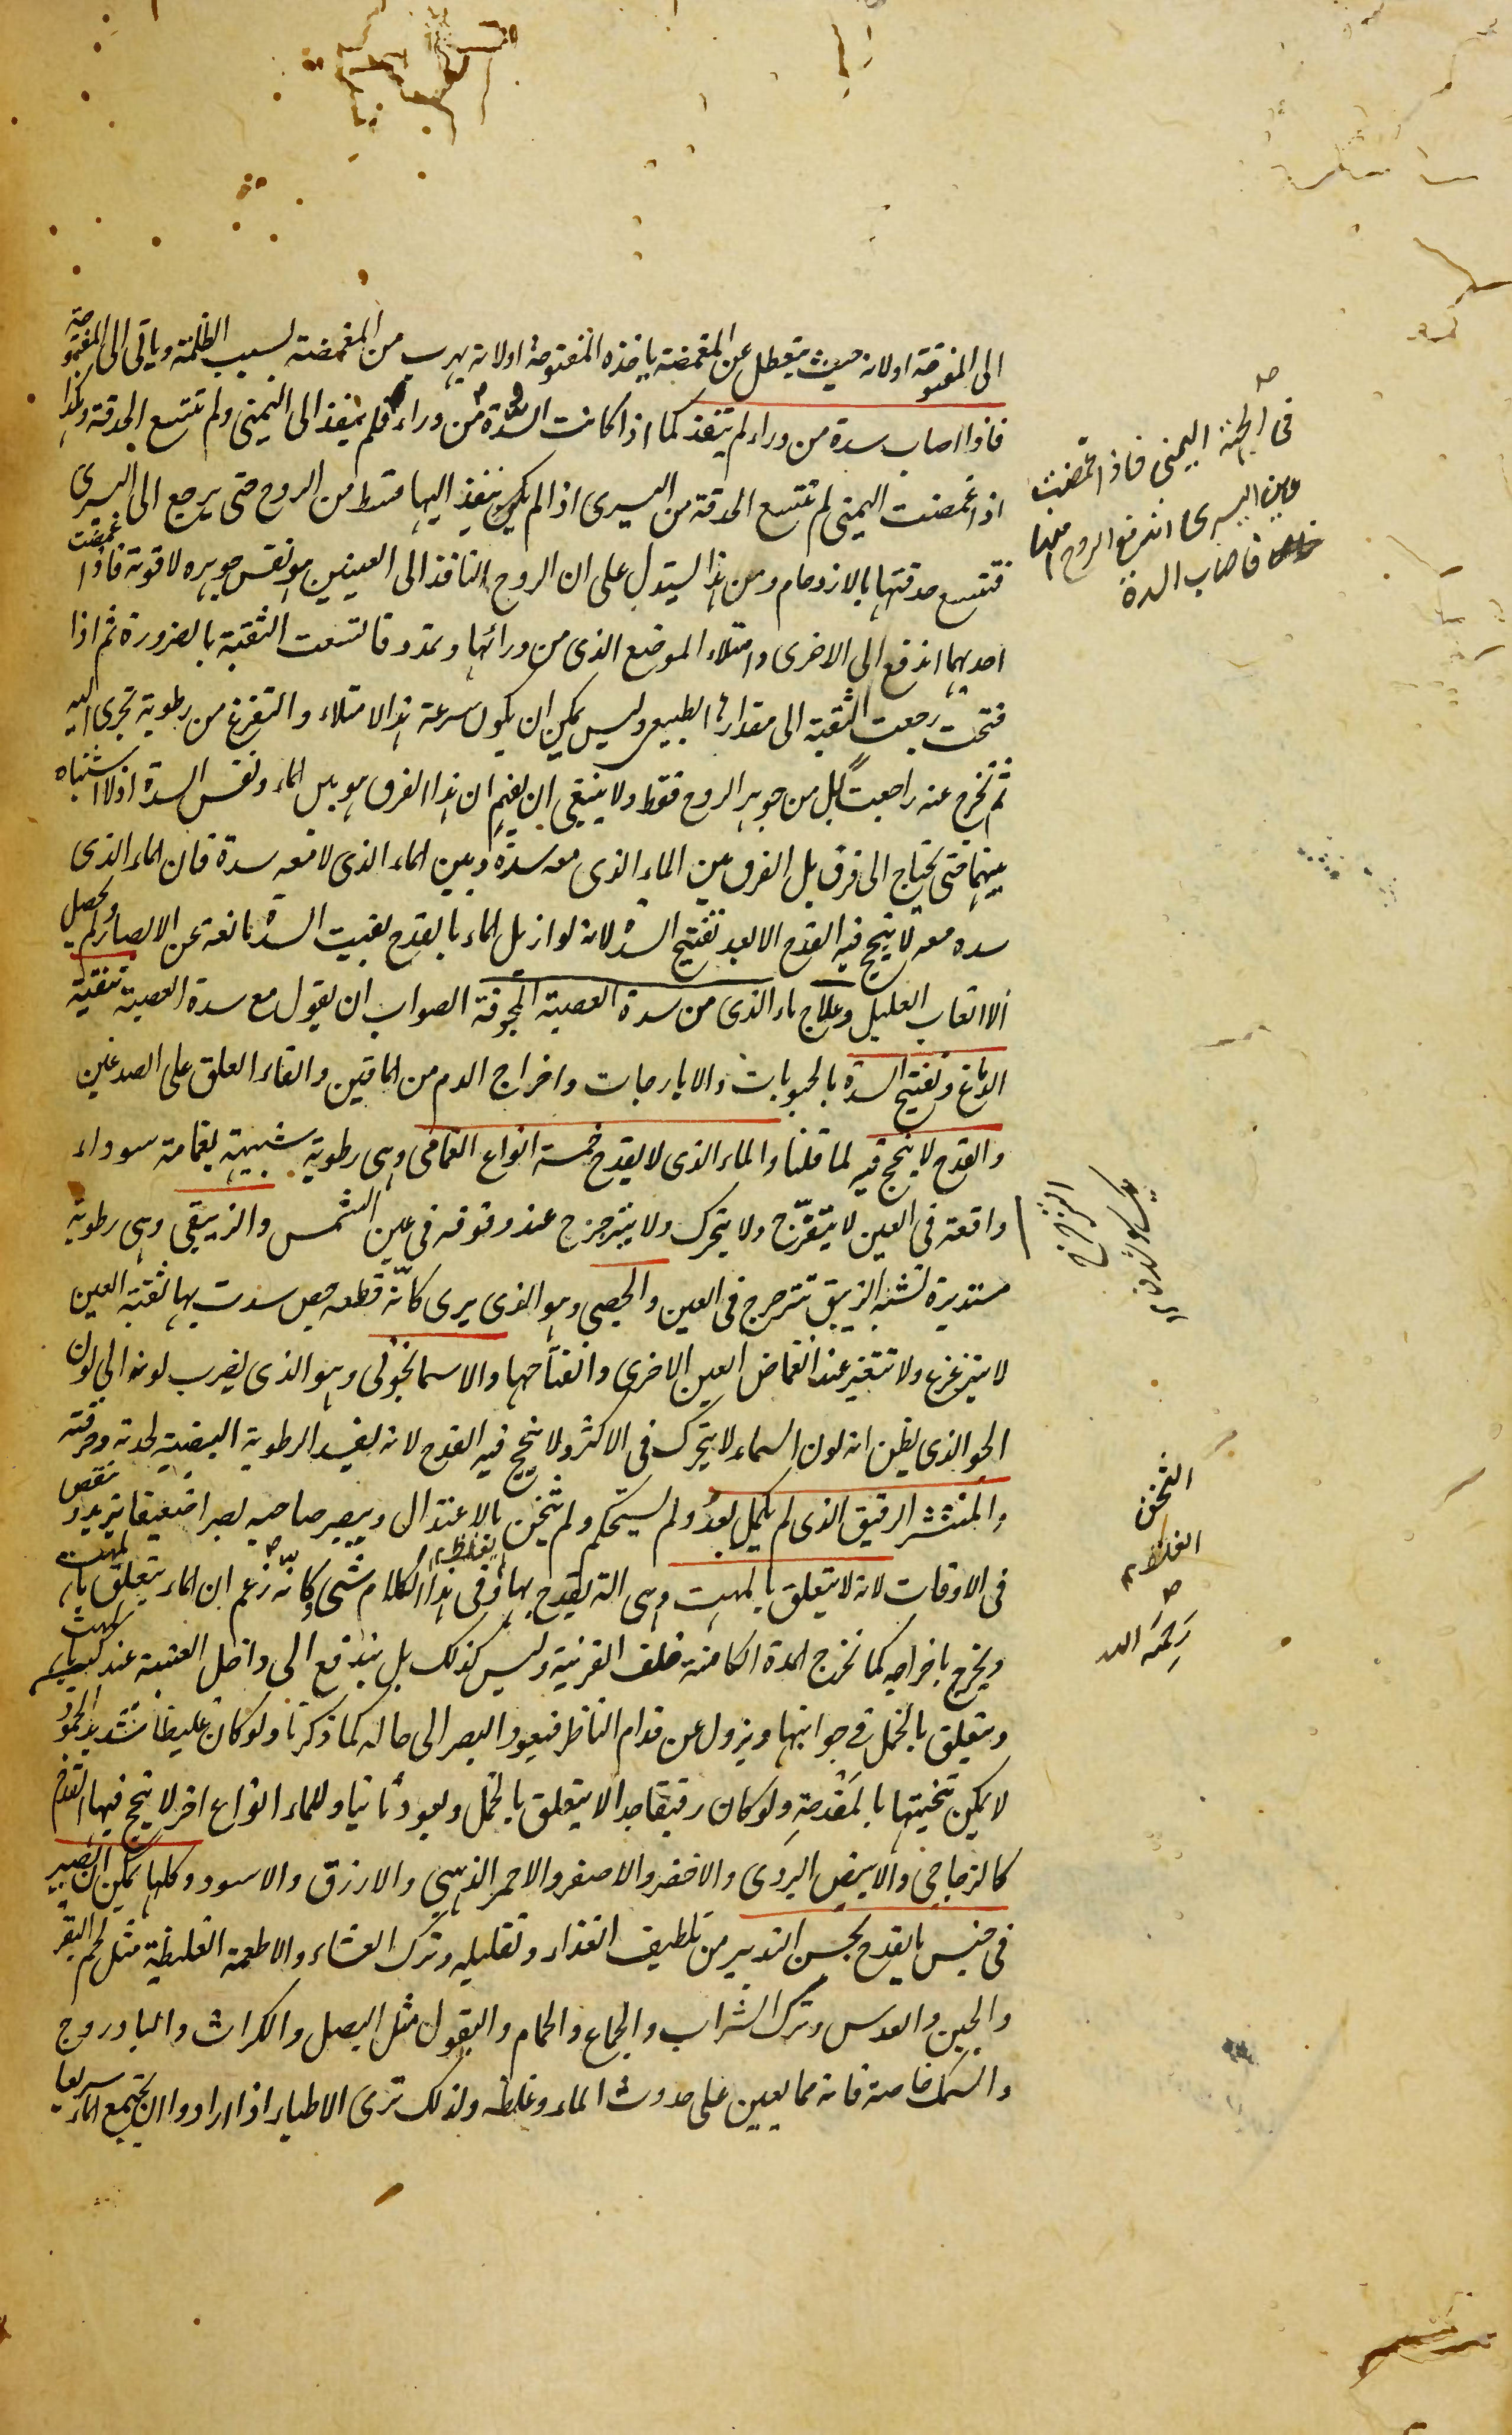 الى المفتوحة اولانه حيث يتعطل عن المغمضة ياخذه المفتوحة اولانه يهرب من المغمضة بسبب الظلمة وياتى الى المفتوحة
فاذا اصاب سدة من وراء لم ينفذ كما اذا كانت السدة من وراء فلم ينفذ الى اليمنى ولم تتسع الحدقة وكذا
اذا غمضت اليمنى لم تتسع الحدقة من اليسرى اذا لم يكن ينفذ اليها قسط من الروح حتى يرجع الى اليسرى
فتتسع حدقتها بالازدحام ومن هذا يستدل على ان الروح النافذ الى العينين هو نفس جوهره لا قوته فاذا غمضت
احديهما اندفع الى الاخرى وامتلاء الموضع الذى من ورائها وتمدد فاتسعت الثقبة بالضرورة ثم اذا
فتحت رجعت الثقبة الى مقدارها الطبيعى وليس يمكن ان يكون سرعة هذا الامتلاء والتفرغ من رطوبة تجرى اليه
ثم تخرج عنه راجعت بل من جوهر الروح فقط ولا ينبغى ان يفهم ان هذا الفرق هو بين الماء ونفس السدة اذ لا اشتباه
بينهما حتى يحتاج الى فرق بل الفرق بين الماء الذى معه سدة وبين الماء الذى لا معه سدة فان الماء الذى
سده معه لا ينجح فيه القدح الا بعد تفتيح السدة لانه لو ازيل الماء بالقدح بقيت السدة مانعة عن الابصار ولم يحصل
الا اتعاب العليل وعلاج ماء الذى من سدة العصبة المجوفة الصواب ان يقول مع سدة العصبة تنقية
الدماغ وتفتيح السدة بالحبوبات والايارجات واخراج الدم من الماقين والقاء العلق على الصدغين
والقدح لا ينجح فيه لما قلنا والماء الذى لا يقدح خمسة انواع الغمامى وهى رطوبة شبيهة بغمامة سوداء
واقعة فى العين لا يتفرج ولا يتحرك ولا يترجرج عند وقوفه فى عين الشمس والزيبقى وهى رطوبة
مستديرة تشبه الزيبق تترجرج فى العين والجصى وهو الذى يرى كانّه قطعه جص سدت بها ثقبة العين
لا يتزعزع ولا تتغير عند انغماض العين الاخرى وانفتاحها والاسمانجونى وهو الذى يضرب لونه الى لون
الجو الذى يظن انه لون السماء لا يتحرك فى الاكثر ولا ينجح فيه القدح لانه يفسد الرطوبة البيضية لحدته ورقته
والمنتشر الرقيق الذى لم يكمل بعد ولم يستحكم ولم يثخن بالاعتدال ويبصر صاحبه بصرا ضعيفا يزيد وينقص
فى الاوقات لانه لا يتعلق بالمهت وهى الة يقدح بها وفى هذا الكلام شى وكانّه زعم ان الماء يتعلق بالمهت
ويخرج باخراجه كما تخرج المدة الكامنة خلف القرنية وليس كذلك بل يندفع الى داخل العنبية عند
ويتعلق بالخمل فى جوانبها ويزول عن قدام الناظر فيعود البصر الى حاله كما ذكرنا ولو كان غليظا شديد الجمود
لا يمكن تنحيتها بالمقدحة ولو كان رقيقا جدا لا يتعلق بالخمل ويعود ثانيا وللماء انواع اخر لا ينجح فيها القدح
كالزجاجى والابيض البردى والاخضر والاصفر والاحمر الذهبى والازرق والاسود وكلها يمكن ان يصير
فى جنس ما يقدح بحسن التدبير من تلطيف الغذاء وتقليله وترك العشاء والاطعمة الغليظة مثل لحم البقر
والجبن والعدس وترك الشراب والجماع والحمام والبقول مثل البصل والكراث والبادروج
والسمك خاصة فانه مما يعين على حدوث الماء وغلظه ولذلك ترى الاطباء اذا ارادوا ان يجتمع الماء سريعا
فى الجهة اليمنى فاذا غمضت
عين اليسرى اندفع الروح
فاصاب السدة
الثخن
الغلظ
رحمه الله